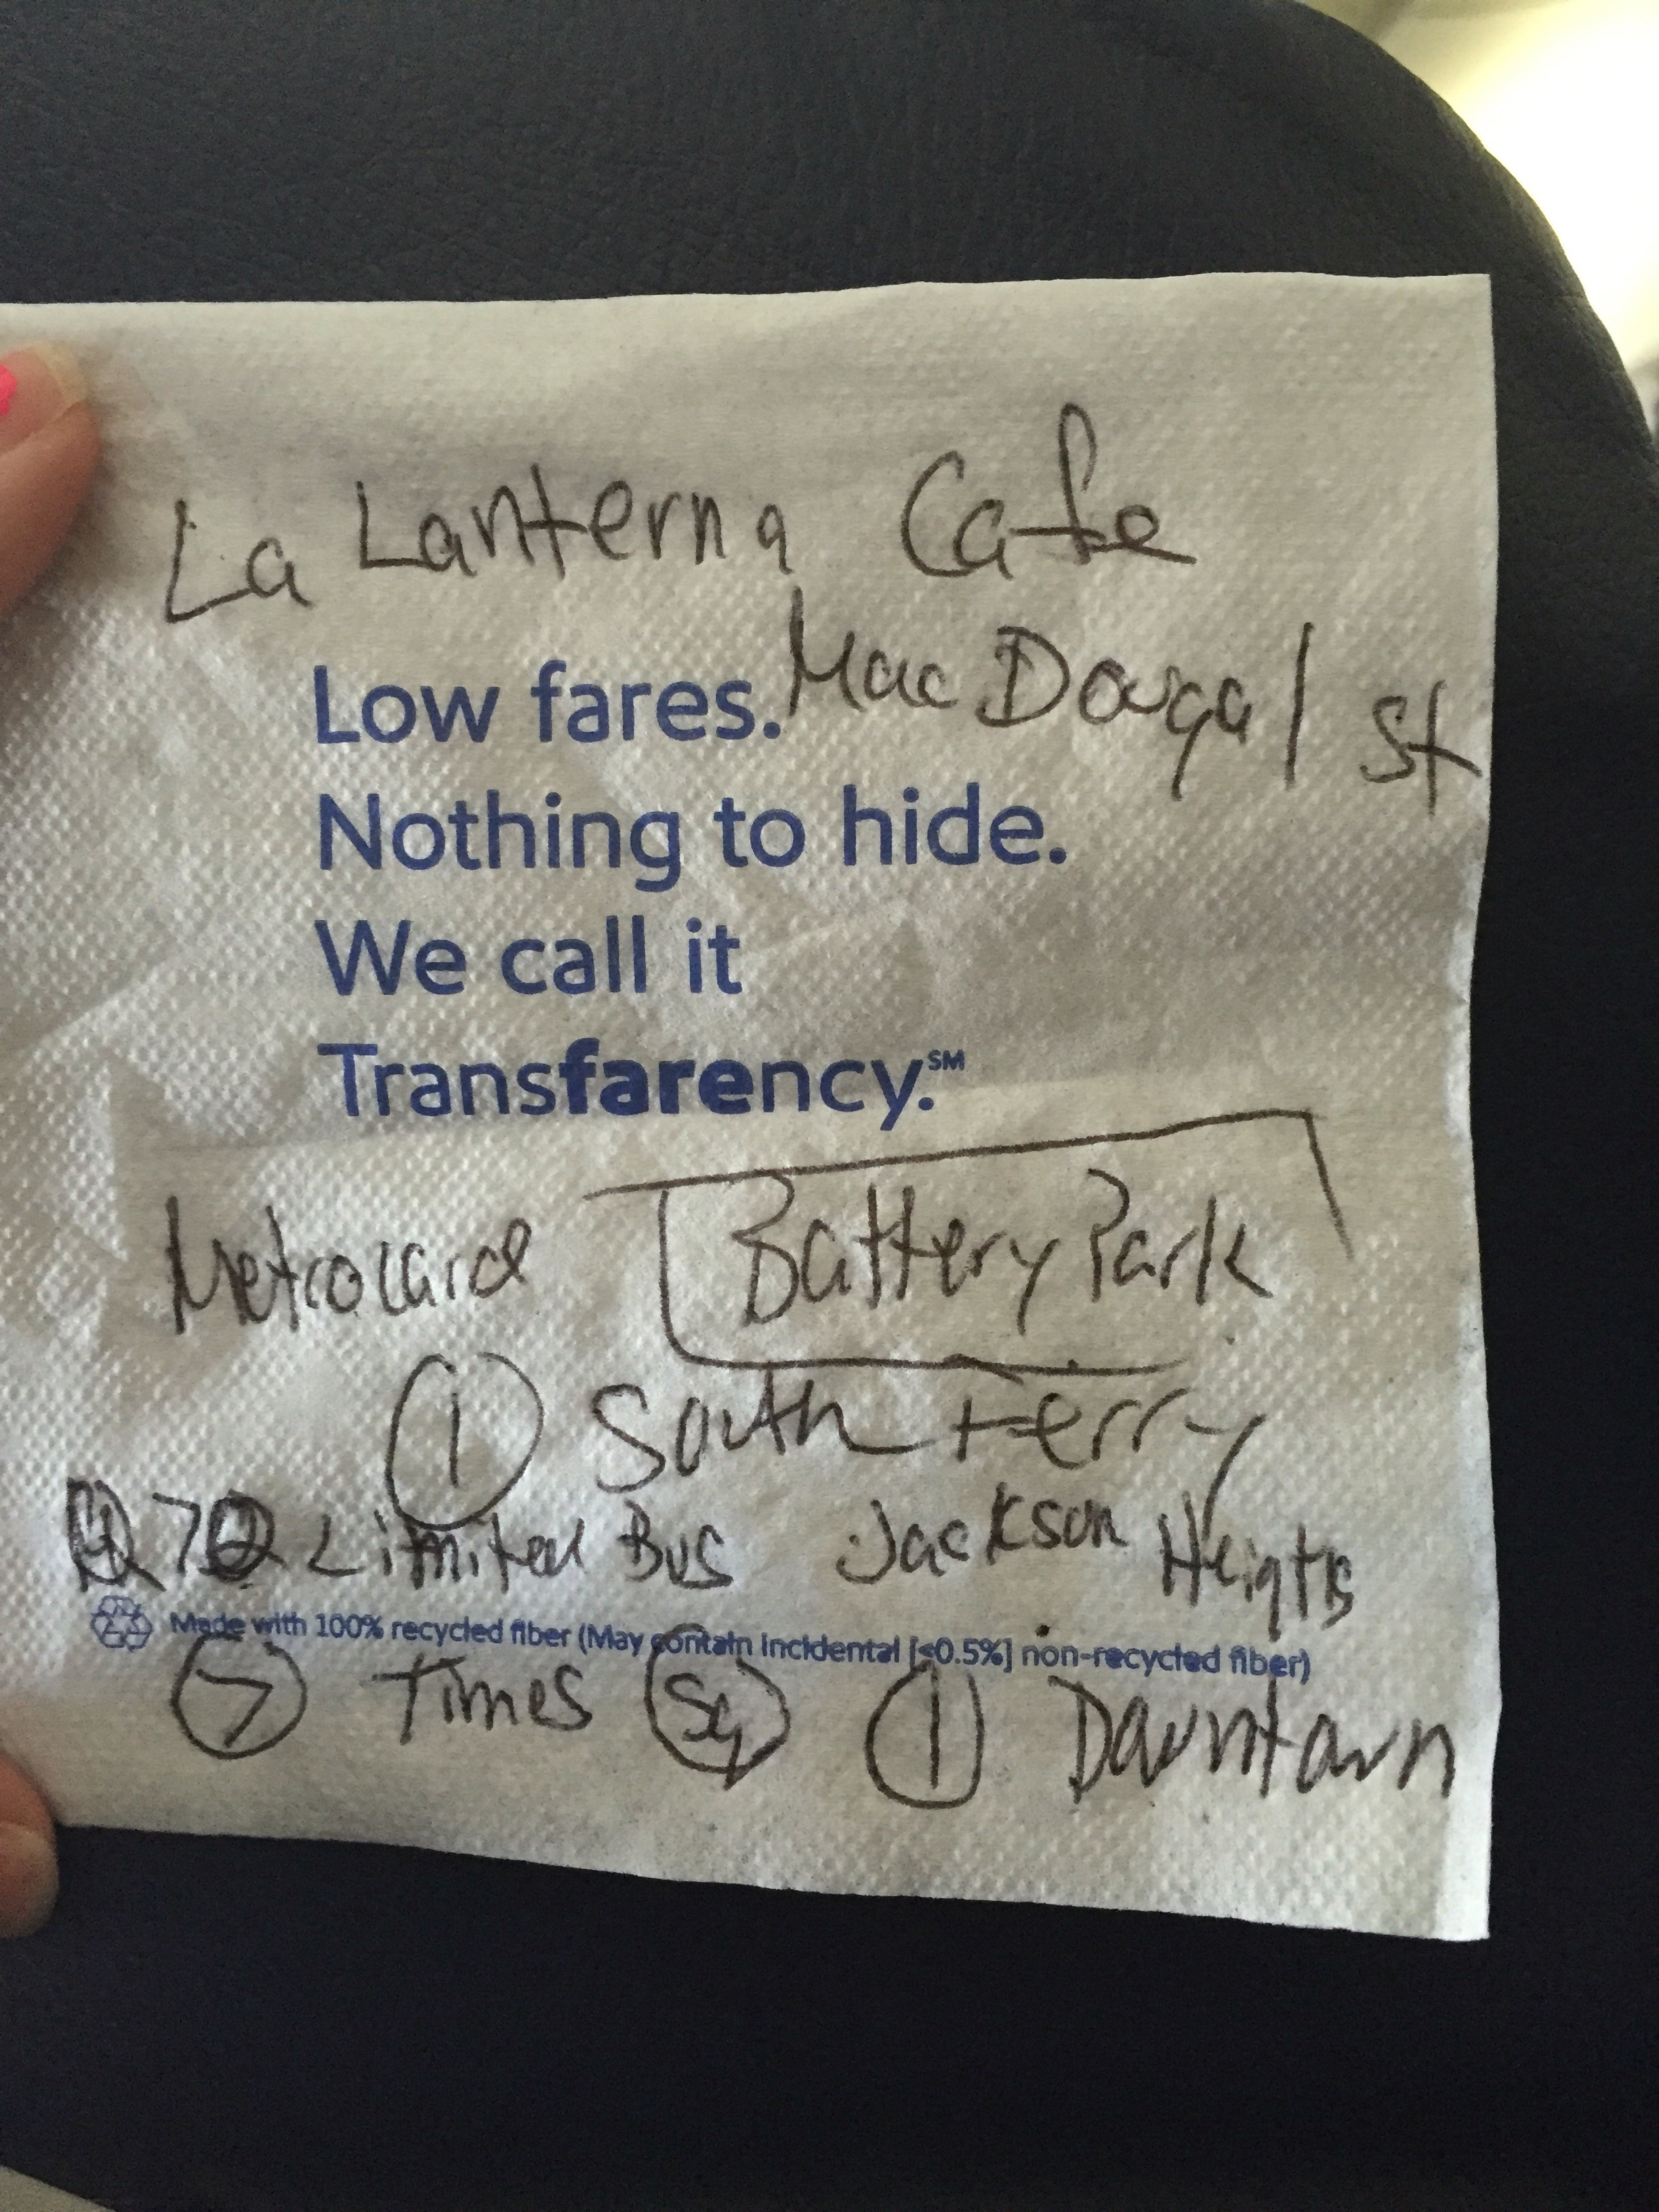 La Lanterna Cafe
MacDougal St
Low fares.
Nothing to hide.
We call it
Transfarency.℠
Metrocard Battery Park
1 South Ferry
Q70 Limited Bus Jackson Heights
Made with 100% recycled fiber (May contain incidental [≤0.5%] non-recycled fiber)
7 Times Sq 1 Downtown